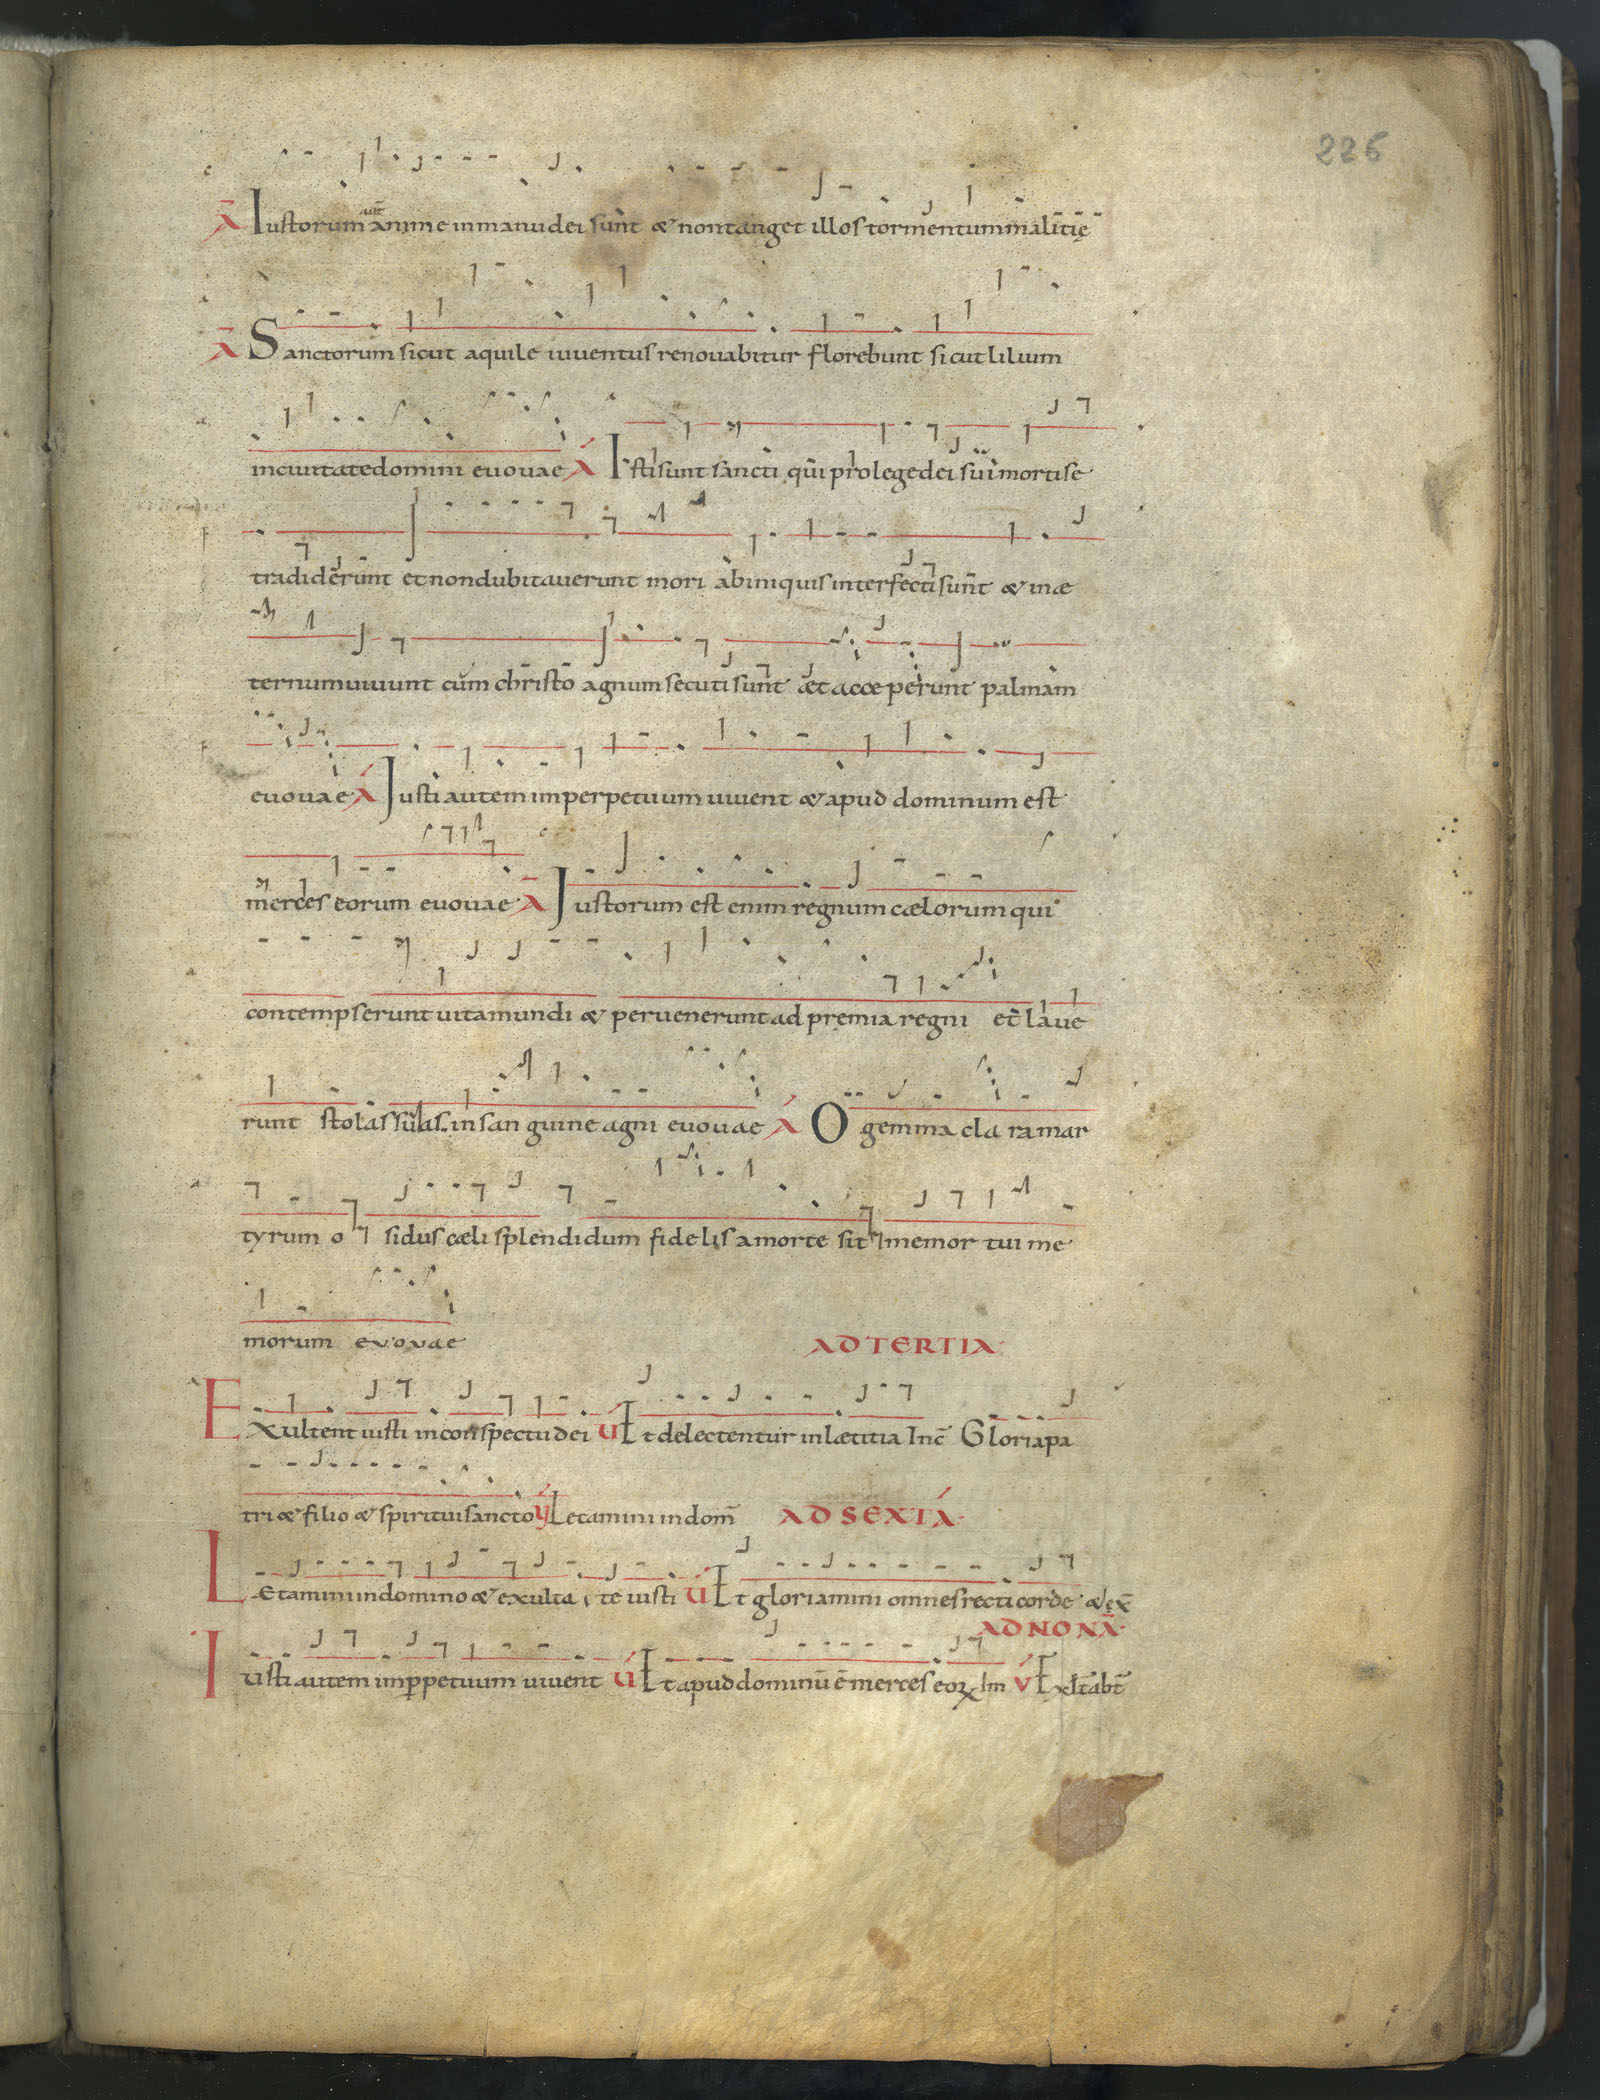 226
A Iustorum aut̄ anime in manu dei sunt & non tanget illos tormentum malitię
A Sanctorum sicut aquile iuventus renovabitur florebunt sicut lilium
in civitate domini evovae A Isti sunt sancti qui pro lege dei sui morti se
tradiderunt et non dubitaverunt mori ab iniquis interfecti sunt & in æ
ternum vivunt cum christo agnum secuti sunt et acce perunt palmam
evovae A Iusti autem in perpetuum vivent & apud dominum est
merces eorum evovae A Iustorum est enim regnum cælorum qui
contempserunt vita mundi & pervenerunt ad pręmia regni et lave
runt stolas suas in san guine agni evovae A O gemma cla ra mar
tyrum o sidus cæli splendidum fidelis a morte sit memor tui me
morum evovae AD TERTIA
Exultent iusti in conspectu dei V Et delectentur in lætitia Inc̄ Gloria pa
tri & filio & spiritui sancto V Letamini in dom̄ AD SEXTA
Lætamini in domino & exulta te iusti V Et gloriamini omnes recti corde & ex̄
AD NONĀ
Iusti autem in ꝑpetuum vivent V Et apud dominū ē merces eoꝝ Im V Exltabt̄